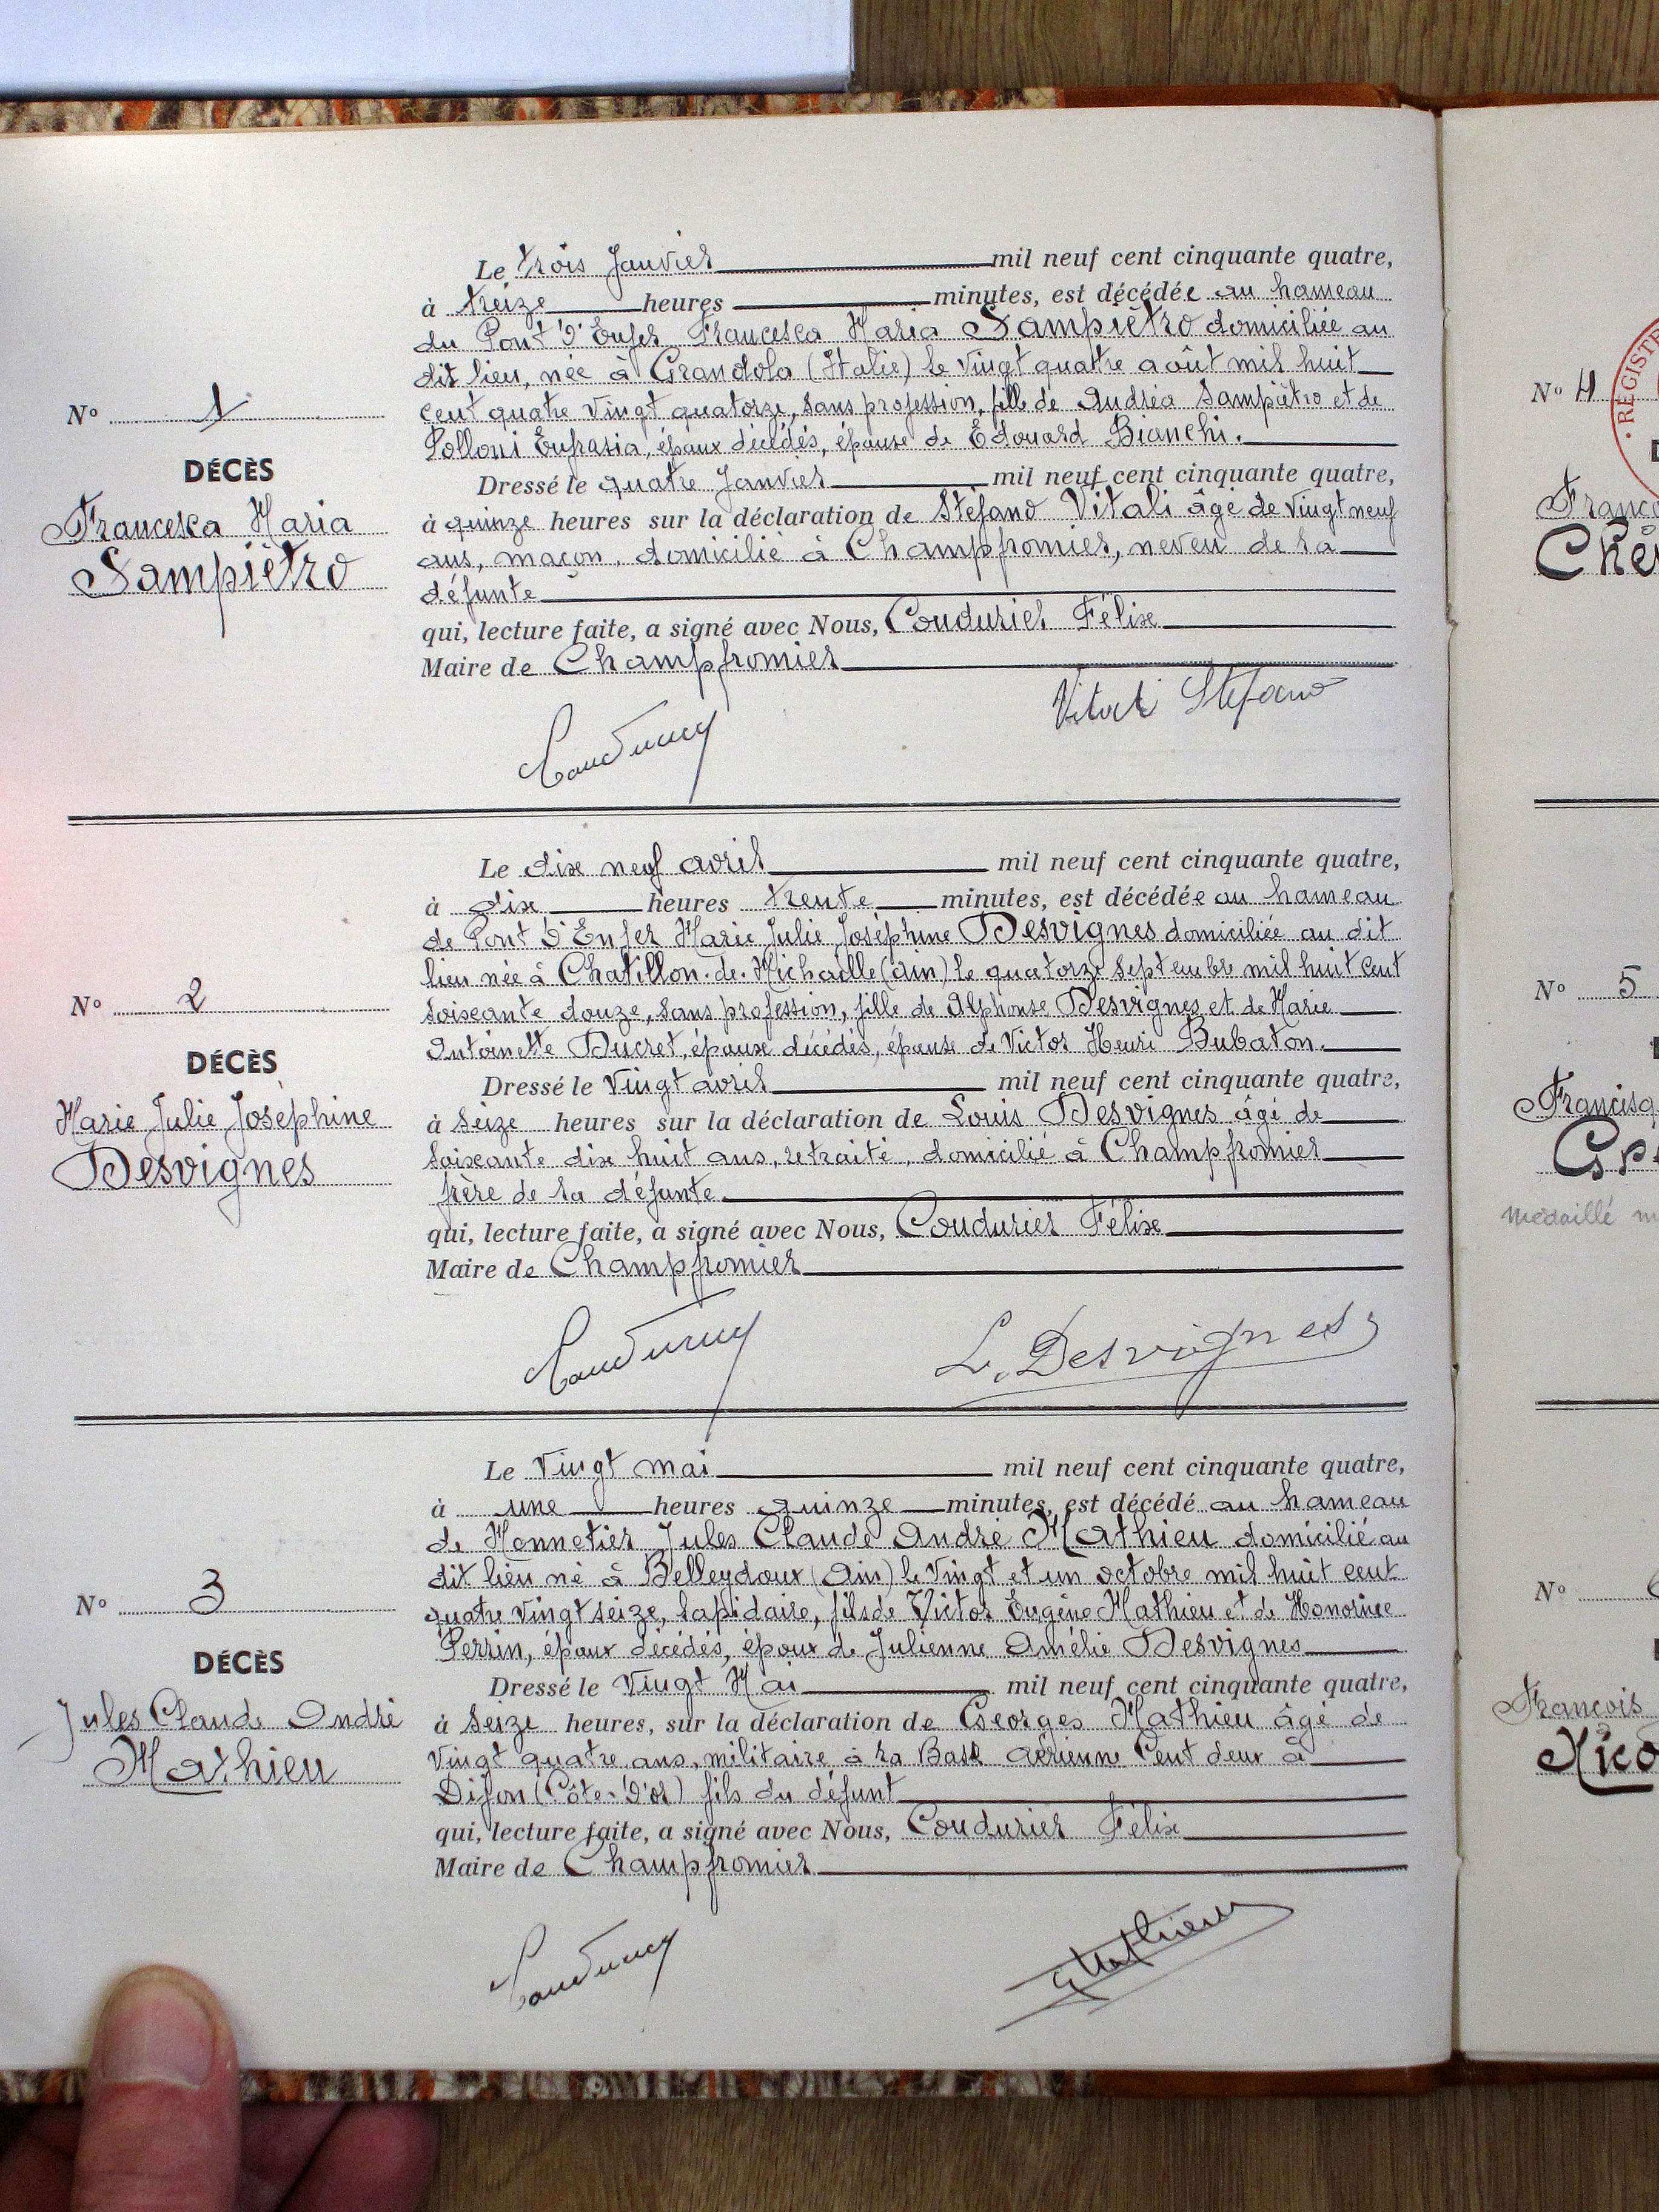 Le trois Janvier mil neuf cent cinquante quatre,
à treize heures minutes, est décédée au hameau
du Pont d'Enfer Francesca Maria Sampiétro domiciliée au
dit lieu, née à Grandola (Italie) le vingt quatre août mil huit
cent quatre vingt quatorze, sans profession, fille de Andréa Sampiétro et de
Polloni Eufrasia, époux décédés, épouse de Edouard Bianchi.
Dressé le quatre Janvier mil neuf cent cinquante quatre,
à quinze heures sur la déclaration de Stéfano Vitali âgé de vingt neuf
ans, maçon, domicilié à Champfromier, neveu de la
défunte
qui, lecture faite, a signé avec Nous, Coudurier Félix
Maire de Champfromier
N° 1
DÉCÈS
Francesca Maria
Sampiétro
Coudurier
Vitali Stefano
Le dix neuf avril mil neuf cent cinquante quatre,
à dix heures trente minutes, est décédée au hameau
de Pont d'Enfer Marie Julie Joséphine Desvignes domiciliée au dit
lieu née à Chatillon-de-Michaille (Ain) le quatorze septembre mil huit cent
soixante douze, sans profession, fille de Alphonse Desvignes et de Marie
Antoinette Ducret, époux décédés, épouse de Victor Henri Bubaton.
Dressé le vingt avril mil neuf cent cinquante quatre,
à seize heures sur la déclaration de Louis Desvignes âgé de
soixante dix huit ans, retraité, domicilié à Champfromier
frère de la défunte
qui, lecture faite, a signé avec Nous, Coudurier Félix
Maire de Champfromier
N° 2
DÉCÈS
Marie Julie Joséphine
Desvignes
Coudurier
L. Desvignes
Le vingt mai mil neuf cent cinquante quatre,
à une heures quinze minutes, est décédé au hameau
de Monnetier Jules Claude André Mathieu domicilié au
dit lieu né à Belleydoux (Ain) le vingt et un octobre mil huit cent
quatre vingt seize, lapidaire, fils de Victor Eugène Mathieu et de Honorine
Perrin, époux décédés, époux de Julienne Amélie Desvignes
Dressé le vingt Mai mil neuf cent cinquante quatre,
à seize heures, sur la déclaration de Georges Mathieu âgé de
vingt quatre ans, militaire à la Base aérienne Cent deux à
Dijon (Côte-d'Or) fils du défunt
qui, lecture faite, a signé avec Nous, Coudurier Félix
Maire de Champfromier
N° 3
DÉCÈS
Jules Claude André
Mathieu
Coudurier
G Mathieu
N° 4
REGISTRE
N° 5
médaillé
N°
François